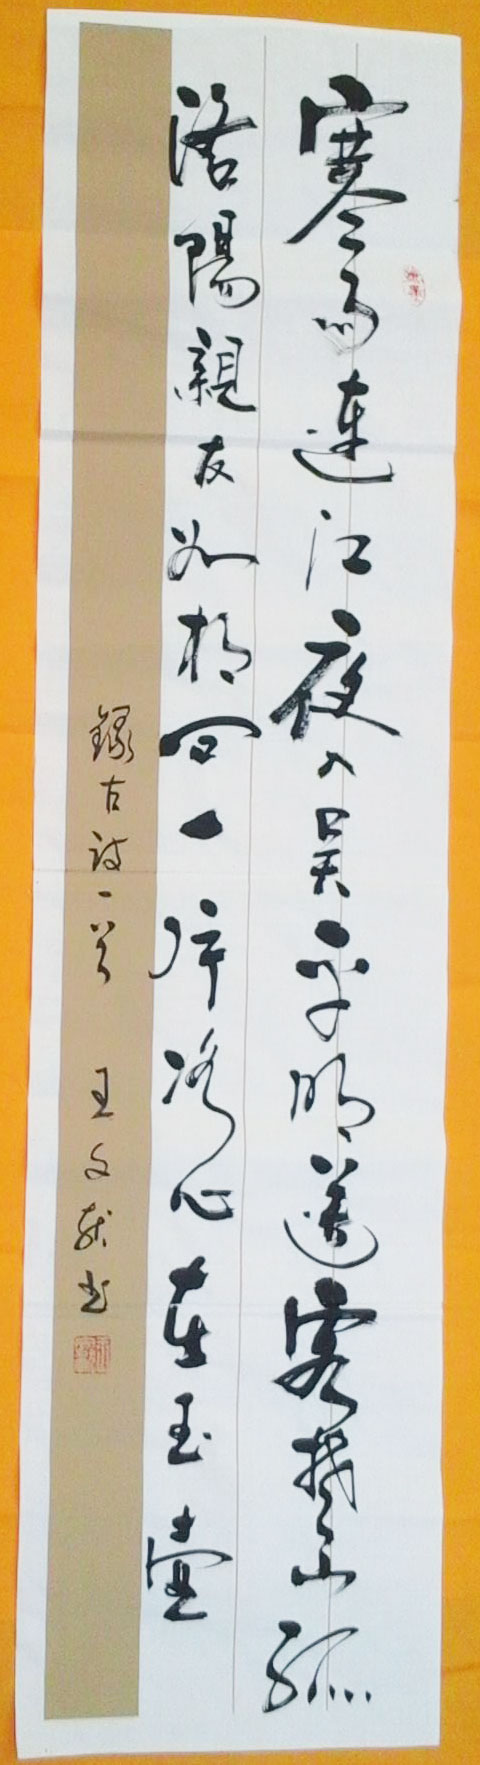 寒雨連江夜入吴平明送客楚山孤
洛陽親友如相问一片冰心在玉壶
錄古詩一首 王文献书